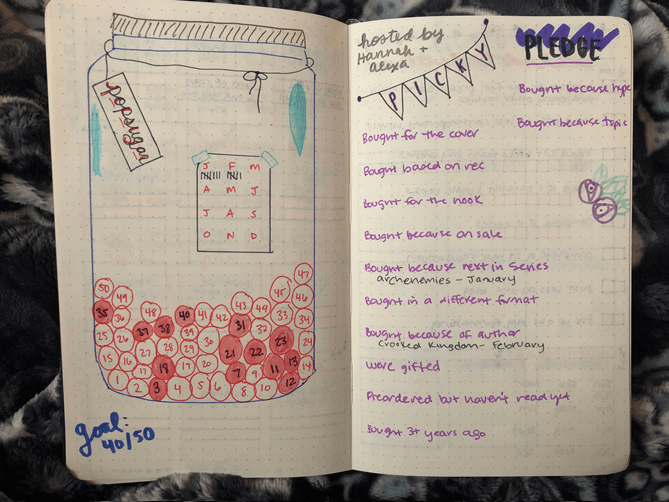 popsugar
J F M
A M J
J A S
O N D
50 49 48 47
35 36 37 38 40 41 42 43 44 45 46
25 26 27 28 39 29 30 31 32 33 34
15 16 17 18 19 20 21 22 23 24
1 2 3 4 5 6 7 8 9 10 11 12 13 14
goal:
40/50
hosted by
Hannah +
alexa
PICKY
PLEDGE
Bought because hype
Bought because topic
Bought for the cover
Bought based on rec
Bought for the nook
Bought because on sale
Bought because next in Series
archenemies - January
Bought in a different format
Bought because of author
Crooked Kingdom - February
were gifted
Preordered but haven't read yet
Bought 3+ years ago